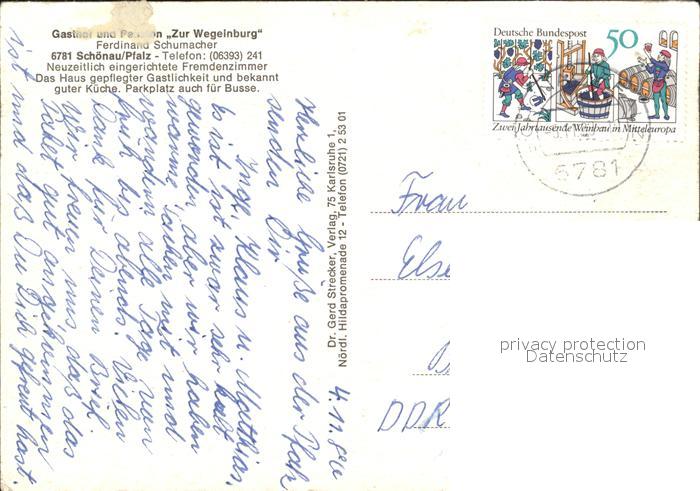 Gasthof und Pension „Zur Wegelnburg"
Ferdinand Schumacher
6781 Schönau/Pfalz - Telefon: (06393) 241
Neuzeitlich eingerichtete Fremdenzimmer
Das Haus gepflegter Gastlichkeit und bekannt
guter Küche. Parkplatz auch für Busse.
4.11.80
Herzliche Grüße aus der Pfalz
senden Dir
Inge, Klaus u. Matthias.
Es ist zwar sehr kalt
geworden, aber wir haben
warme Sachen mit und
wandern alle Tage von
früh bis abends. Vielen
Dank für Deinen Brief.
Wir freuen uns, daß das
Paket gut angekommen
ist und daß Du Dich gefreut hast.
Dr. Gerd Strecker, Verlag, 75 Karlsruhe 1,
Nördl. Hildapromenade 12 - Telefon (0721) 2 53 01
Deutsche Bundespost
50
Zwei Jahrtausende Weinbau in Mitteleuropa
6781
Frau
Else
DDR
privacy protection
Datenschutz